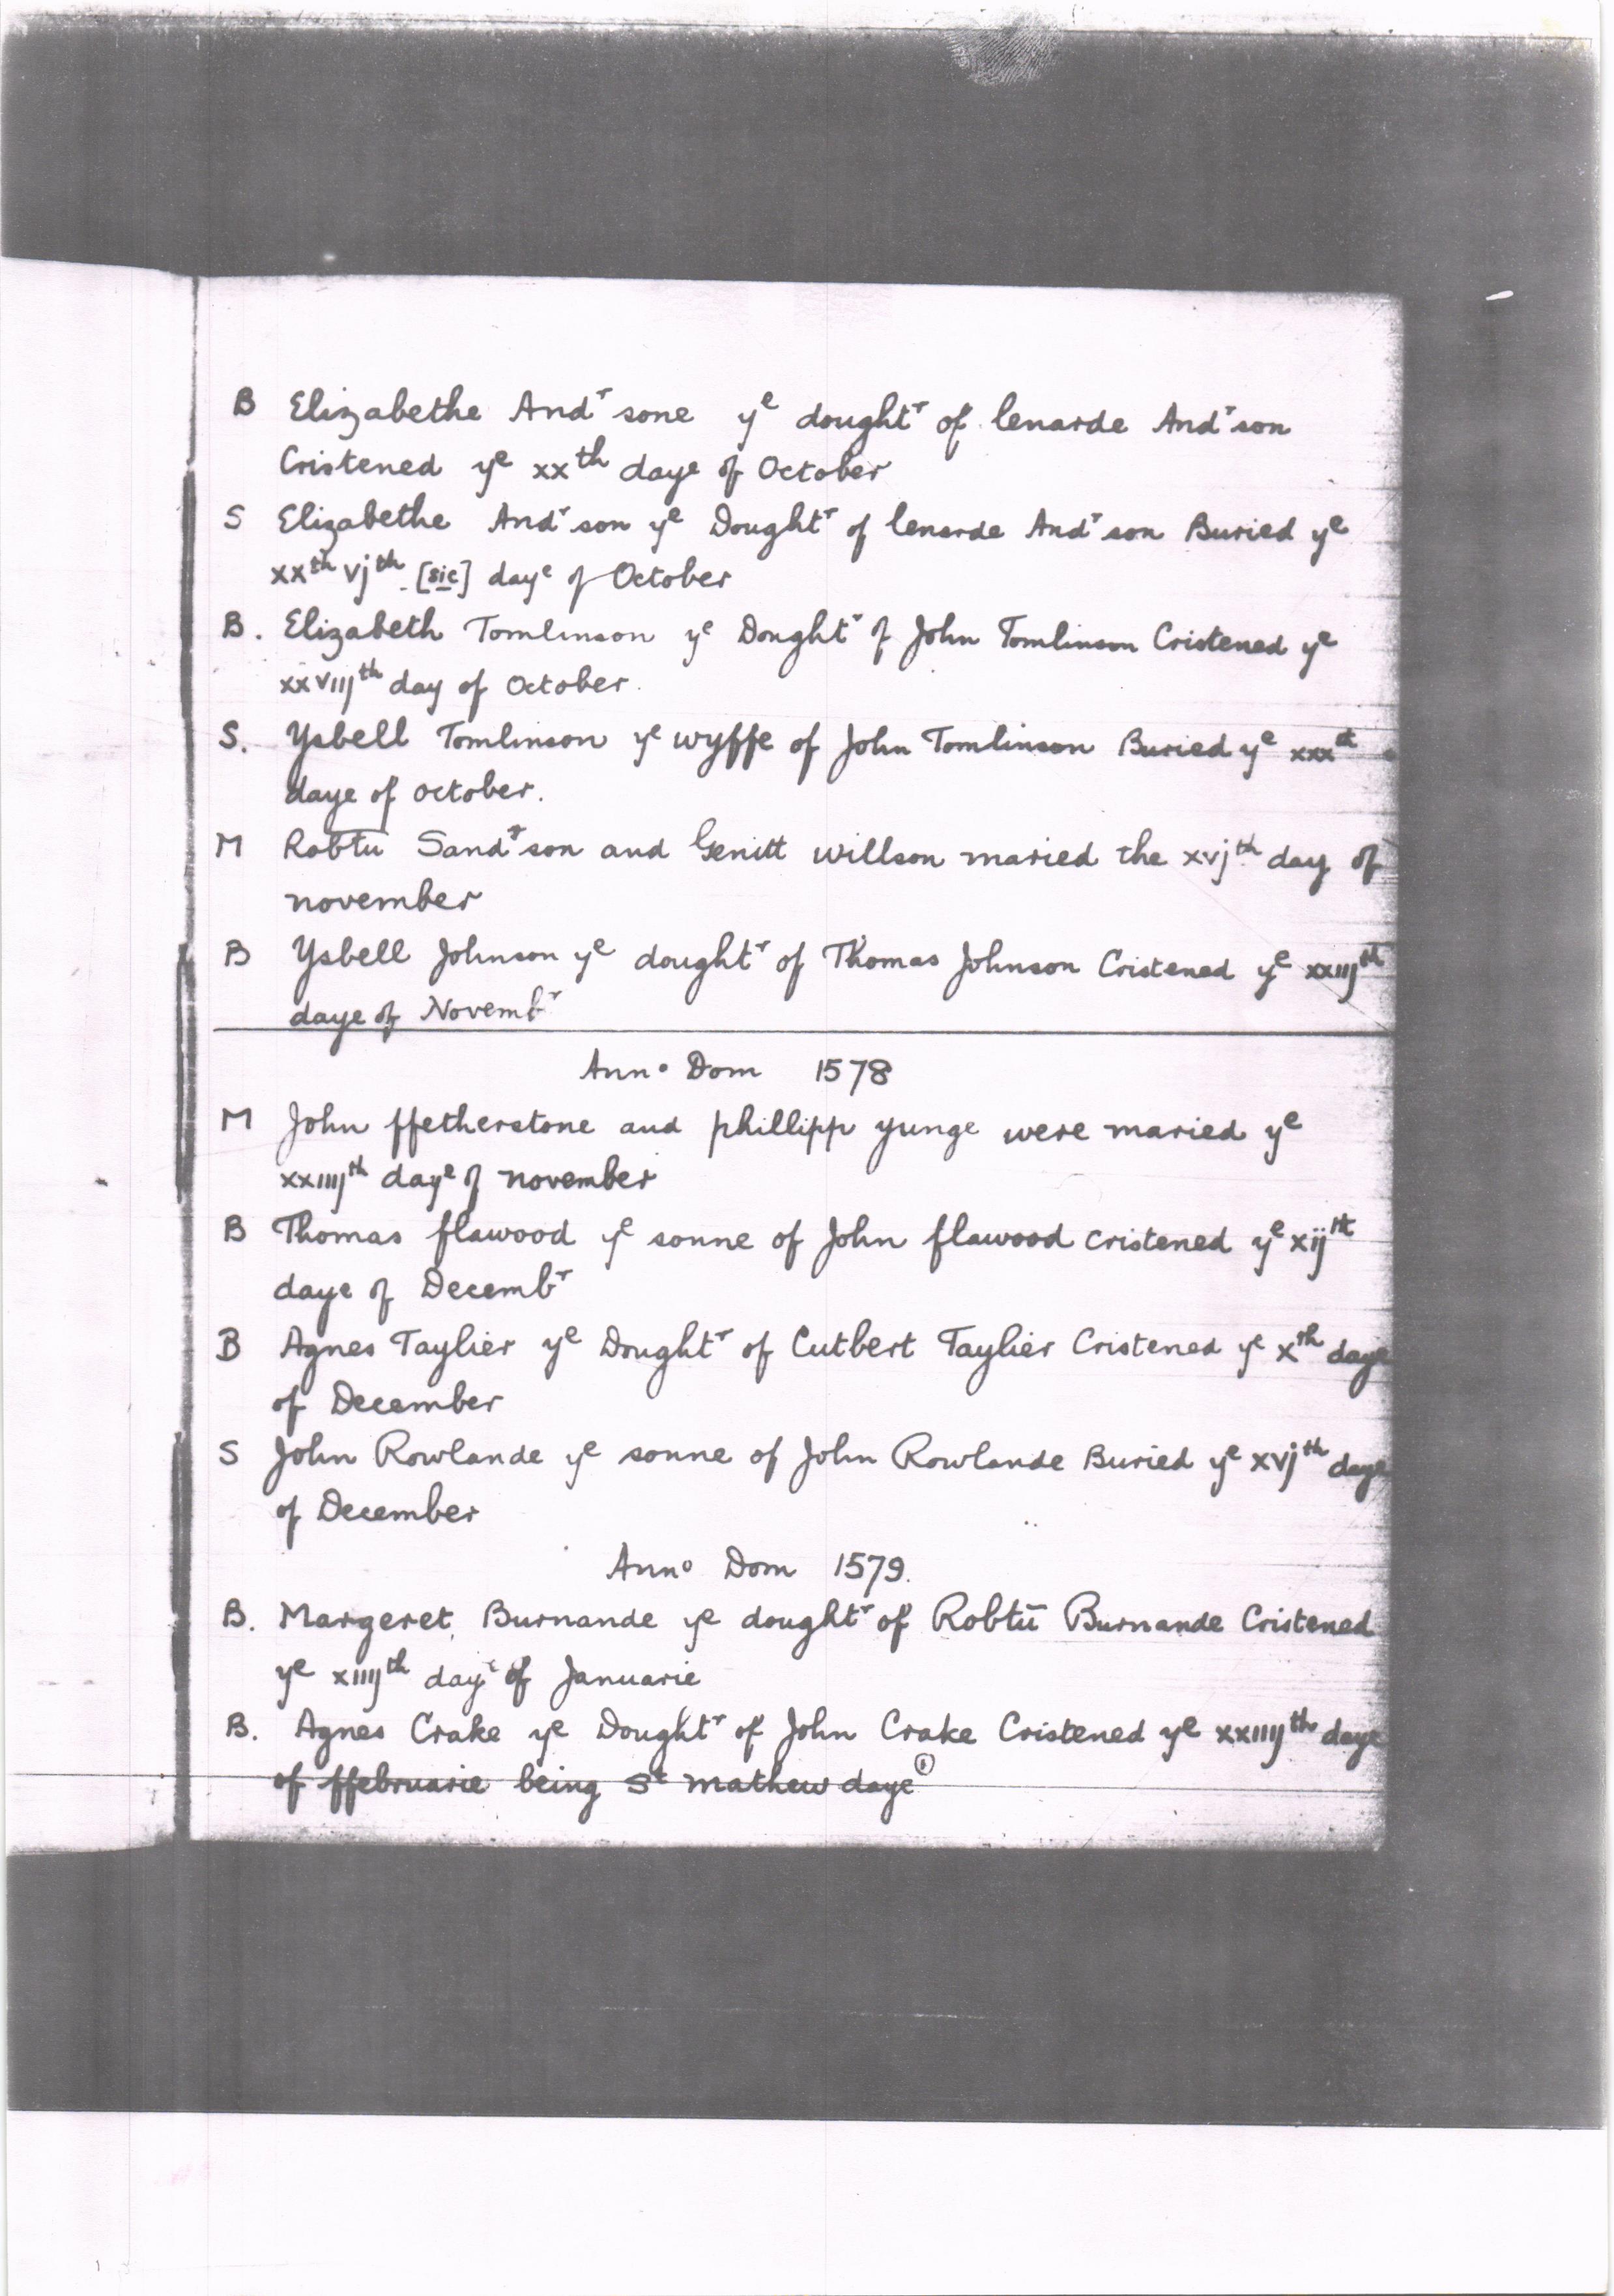 B Elizabethe Andʳsone yᵉ doughtʳ of lenarde Andʳson
Cristened yᵉ xxᵗʰ dayᵉ of October
S Elizabethe Andʳson yᵉ Doughtʳ of lenarde Andʳson Buried yᵉ
xxᵗʰ vjᵗʰ [sic] dayᵉ of October
B. Elizabeth Tomlinson yᵉ Doughtʳ of John Tomlinson Cristened yᵉ
xxviijᵗʰ day of October.
S. Ysbell Tomlinson yᵉ wyffe of John Tomlinson Buried yᵉ xxxᵗʰ
daye of october.
M Robtū Sandʳson and Genitt willson maried the xvjᵗʰ day of
november
B Ysbell Johnson yᵉ doughtʳ of Thomas Johnson Cristened yᵉ xxiijᵗʰ
daye of Novembʳ
Annᵒ Dom 1578
M John ffetherstone and phillipp yunge were maried yᵉ
xxiiijᵗʰ dayᵉ of november
B Thomas flawood yᵉ sonne of John flawood cristened yᵉ xijᵗʰ
daye of Decembʳ
B Agnes Taylier yᵉ Doughtʳ of Cutbert Taylier Cristened yᵉ xᵗʰ daye
of December
S John Rowlande yᵉ sonne of John Rowlande Buried yᵉ xvjᵗʰ daye
of December
Annᵒ Dom 1579.
B. Margeret Burnande yᵉ doughtʳ of Robtū Burnande Cristened
yᵉ xiiijᵗʰ dayᵉ of Januarie
B. Agnes Crake yᵉ Doughtʳ of John Crake Cristened yᵉ xxiiijᵗʰ daye
of ffebruarie being Sᵗ mathew daye ①